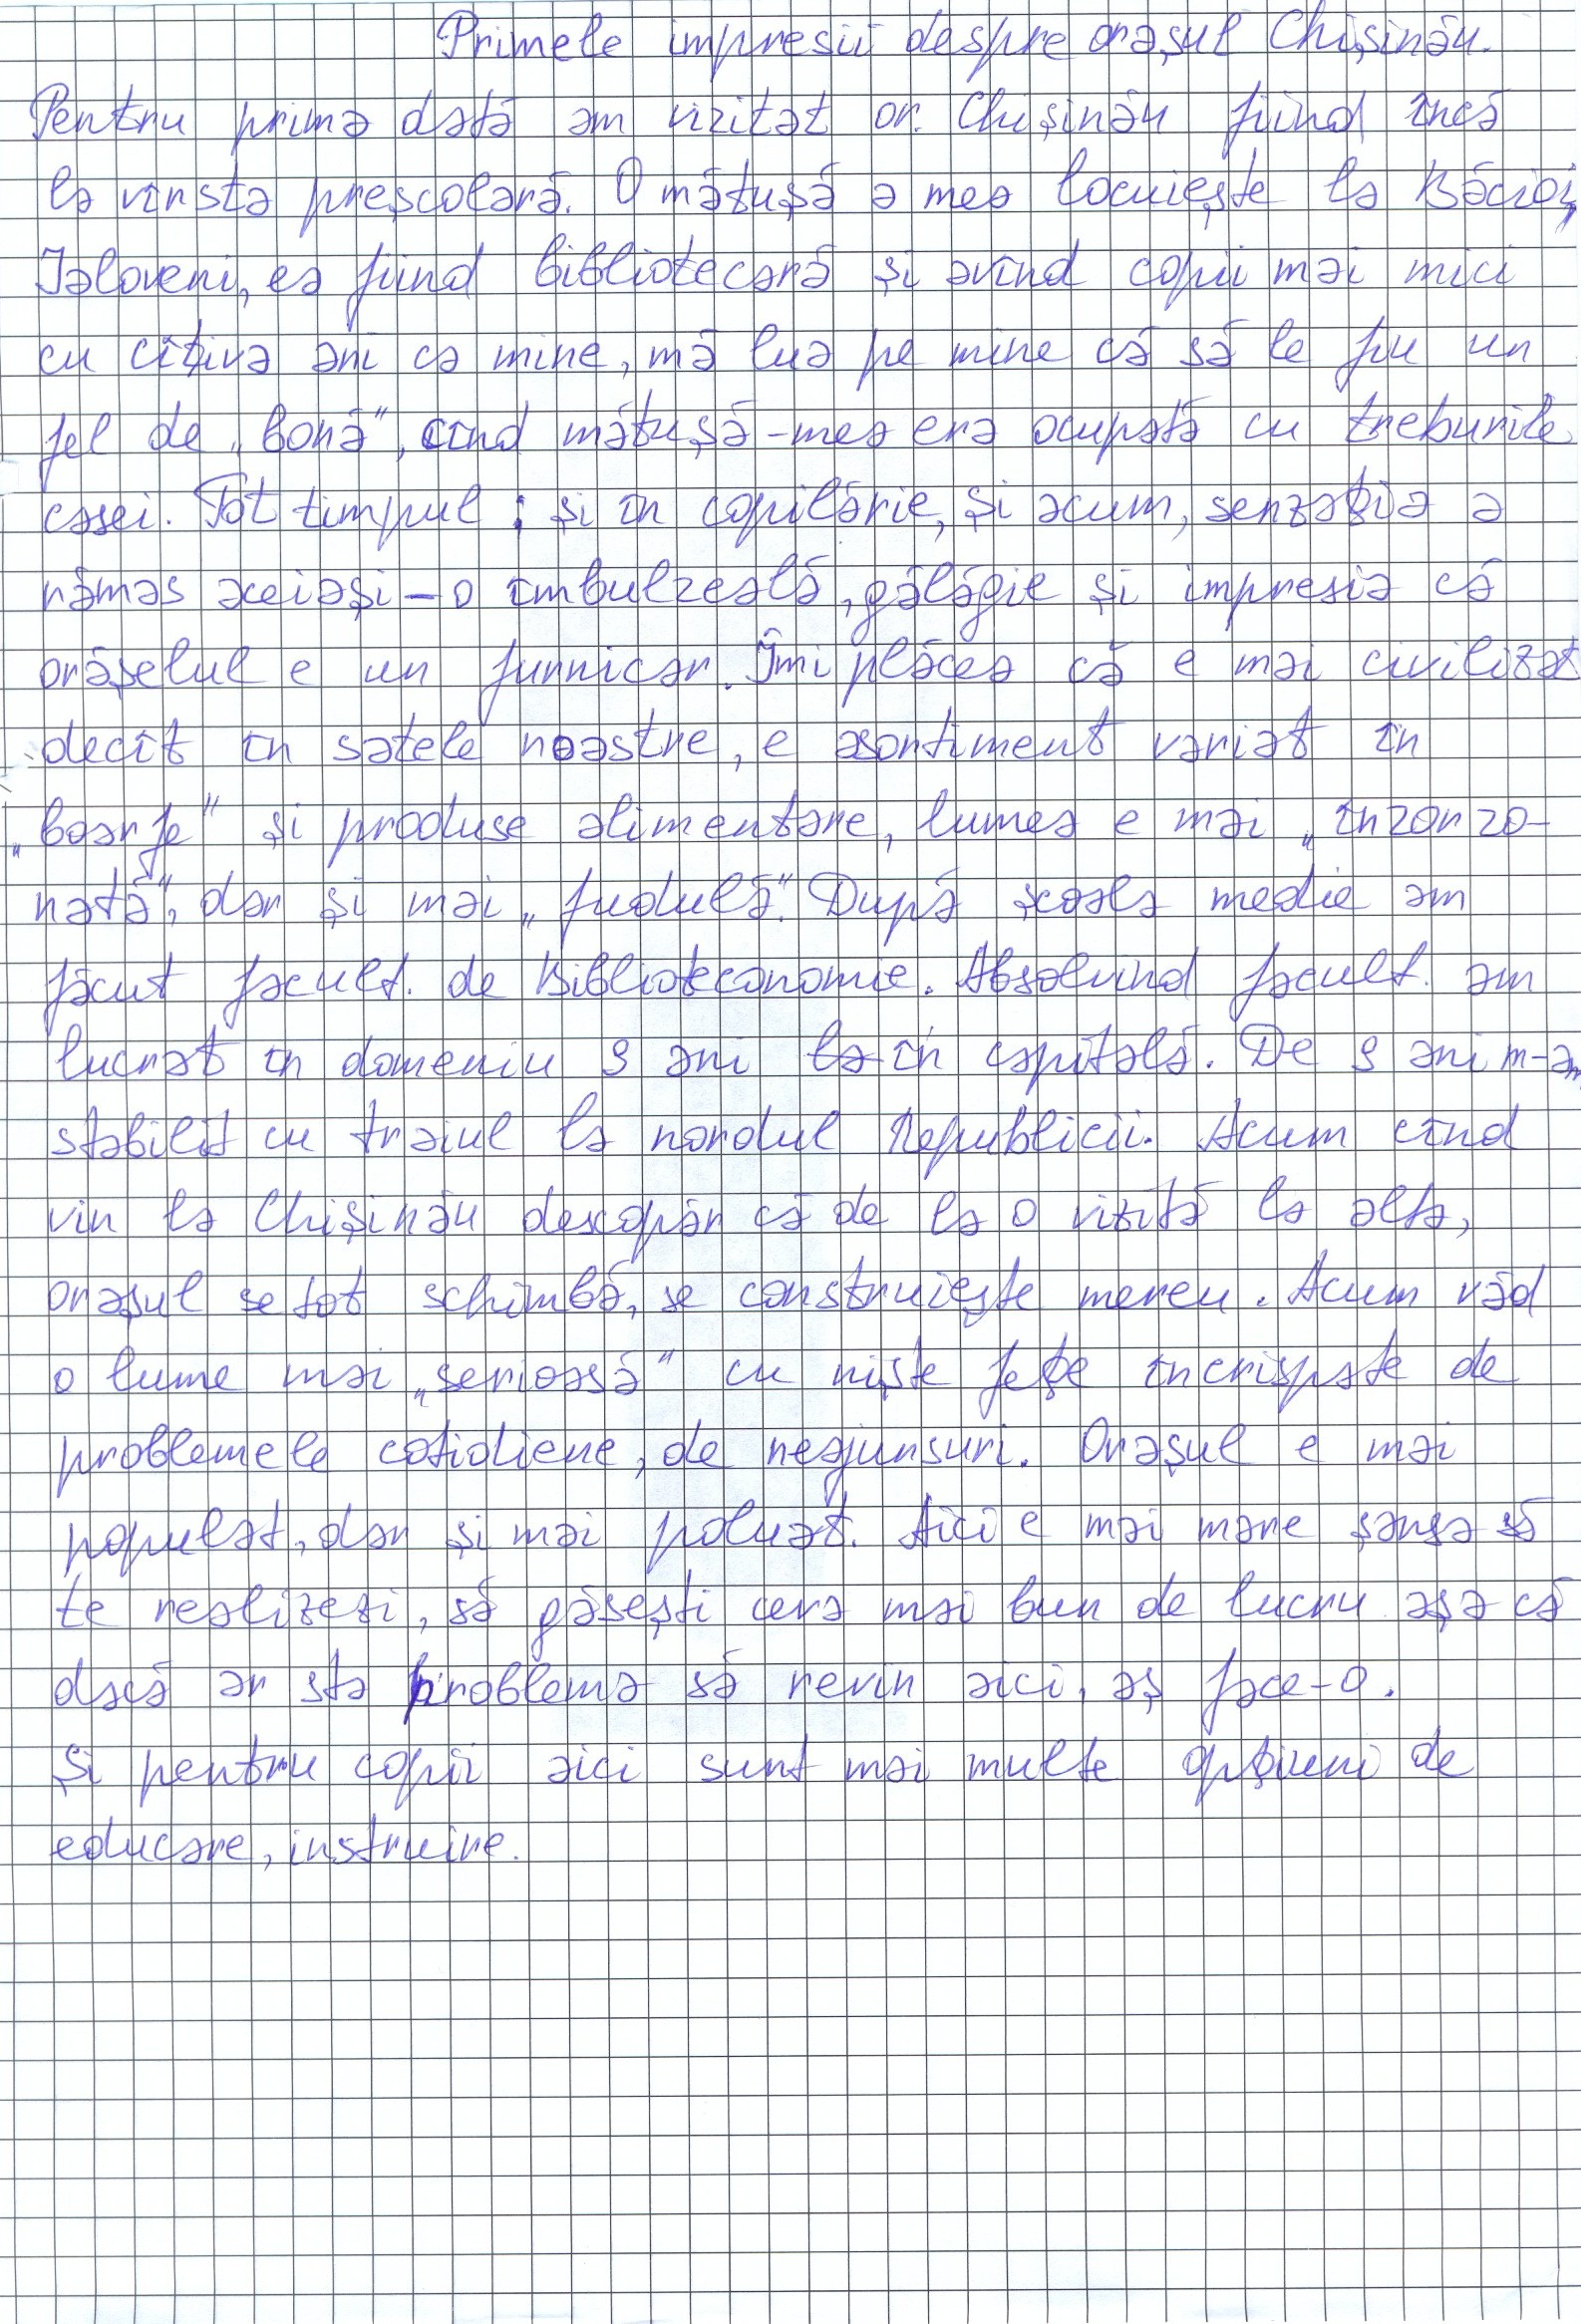 Primele impresii despre orașul Chișinău.
Pentru prima dată am vizitat or. Chișinău fiind încă
la vîrsta preșcolară. O mătușă a mea locuiește la Băcioi,
Ialoveni, ea fiind bibliotecară și avînd copii mai mici
cu cîțiva ani ca mine, mă lua pe mine că să le fiu un
fel de „bonă", cînd mătușă-mea era ocupată cu treburile
casei. Tot timpul; și în copilărie, și acum, senzația a
rămas aceiași – o îmbulzeală, gălăgie și impresia că
orășelul e un furnicar. Îmi plăcea că e mai civilizat
decît în satele noastre, e asortiment variat în
„boarfe" și produse alimentare, lumea e mai „înzorzo-
nată", dar și mai „fudulă". După școala medie am
făcut facult. de Biblioteconomie. Absolvind facult. am
lucrat în domeniu 9 ani la în capitală. De 9 ani m-am
stabilit cu traiul la nordul Republicii. Acum cînd
vin la Chișinău descopăr că de la o vizită la alta,
orașul se tot schimbă, se construiește mereu. Acum văd
o lume mai „serioasă" cu niște fețe încrispate de
problemele cotidiene, de neajunsuri. Orașul e mai
populat, dar și mai poluat. Aici e mai mare șansa să
te realizezi, să găsești ceva mai bun de lucru așa că
dacă ar sta problema să revin aici, aș face-o.
Și pentru copii aici sunt mai multe opțiuni de
educare, instruire.